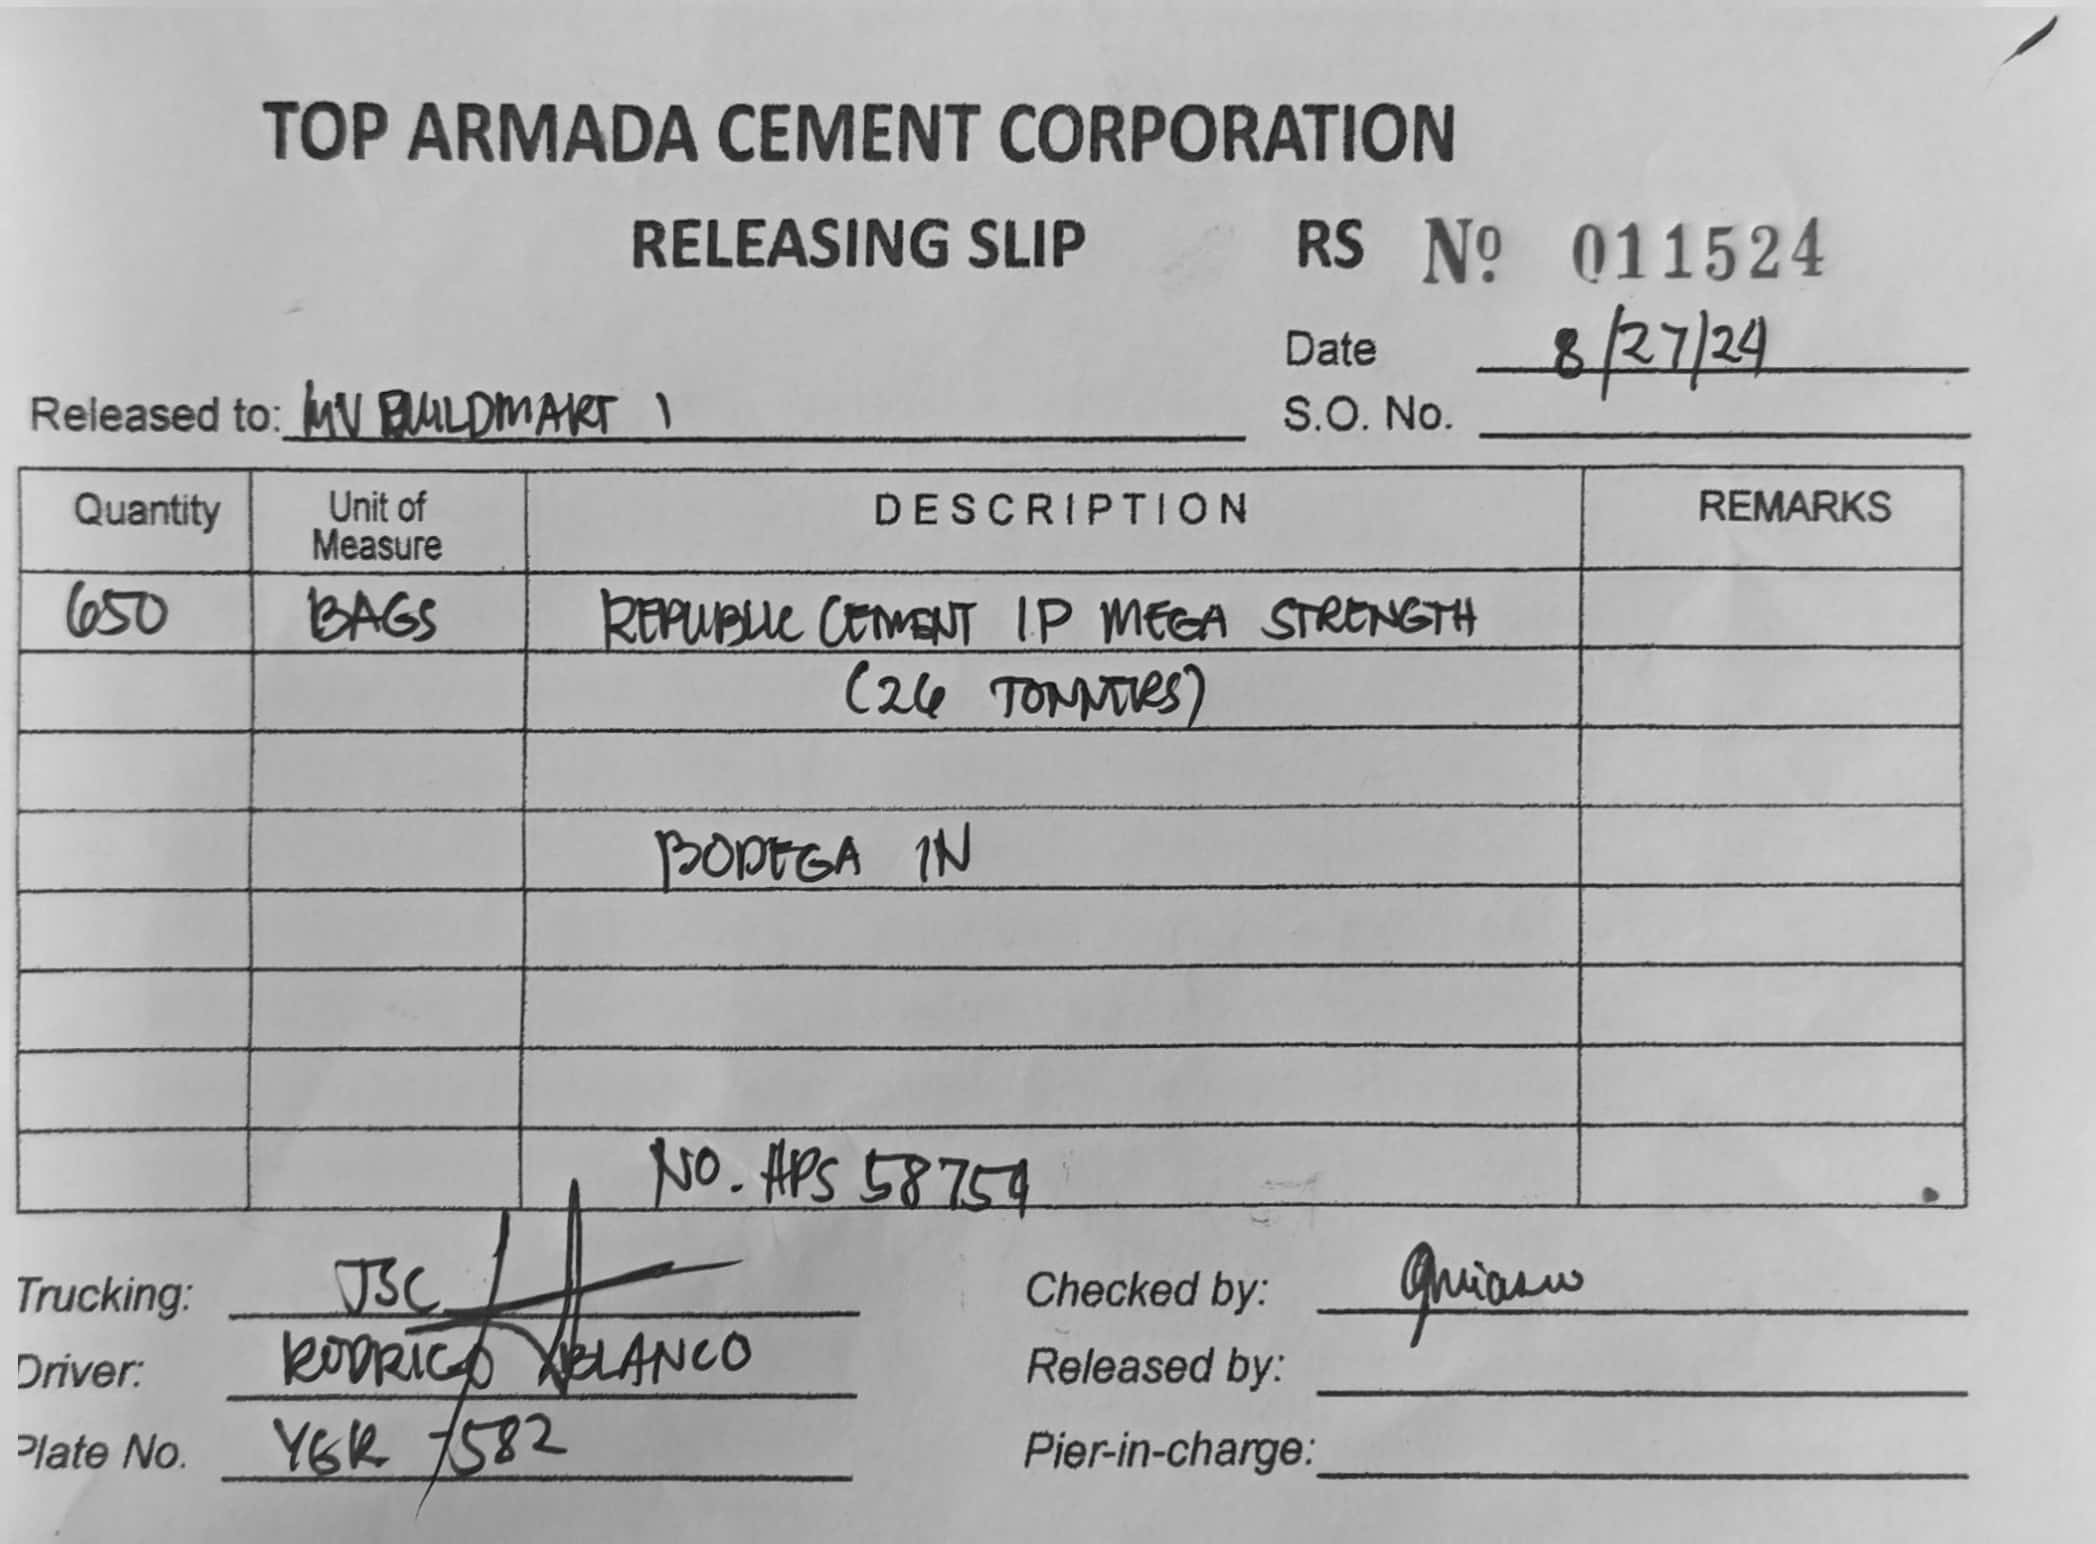 TOP ARMADA CEMENT CORPORATION
RELEASING SLIP RS Nº 011524
Date 8/27/24
Released to: MV BUILDMART 1
S.O. No.
Quantity Unit of Measure DESCRIPTION REMARKS
650 BAGS REPUBLIC CEMENT 1P MEGA STRENGTH
(26 TONNERS)
BODEGA IN
NO. APS 58754
Trucking: JSC Checked by:
Driver: RODRIGO ABLANCO Released by:
Plate No. YGR 582 Pier-in-charge: